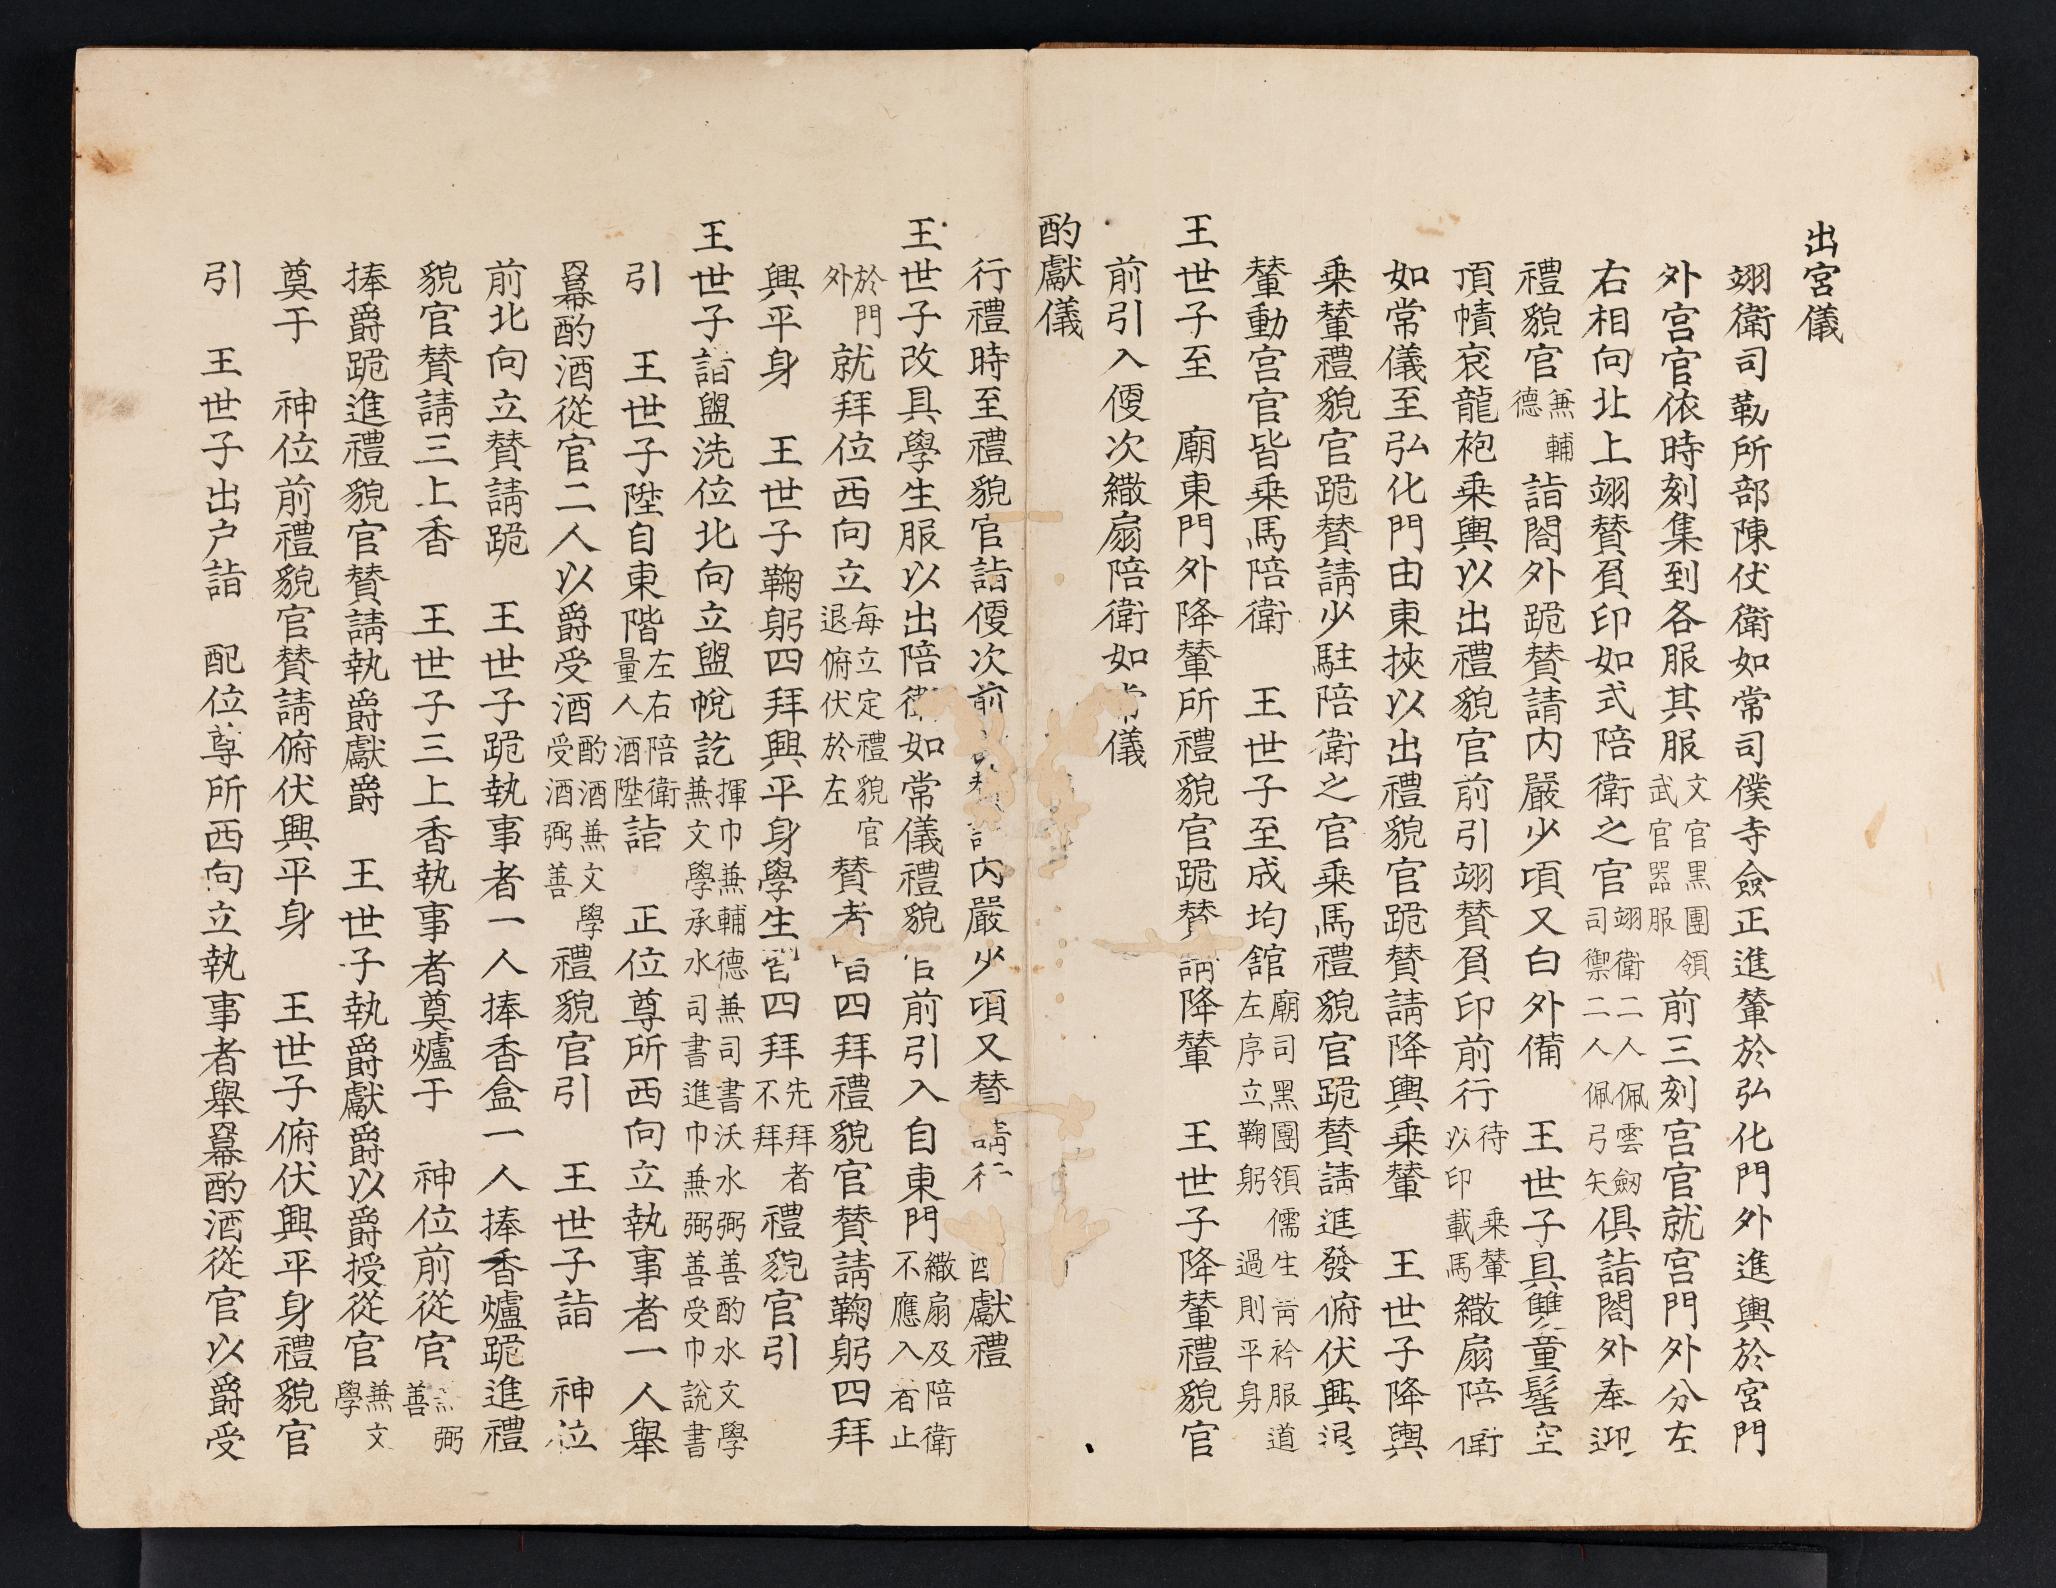 出宮儀
翊衛司勒所部陳仗衛如常司僕寺僉正進輦於弘化門外進輿於宮門
外宮官依時刻集到各服其服文官黑團領武官器服前三刻宮官就宮門外分左
右相向北上翊贊負印如式陪衛之官翊衛二人佩雲劒司禦二人佩弓矢俱詣閤外奉迎
禮貌官兼輔德詣閤外跪贊請內嚴少頃又白外備 王世子具雙童髻空
頂幘袞龍袍乘輿以出禮貌官前引翊贊負印前行待乘輦以印載馬繖扇陪衛
如常儀至弘化門由東挾以出禮貌官跪贊請降輿乘輦 王世子降輿
乘輦禮貌官跪贊請少駐陪衛之官乘馬禮貌官跪贊請進發俯伏興退
輦動宮官皆乘馬陪衛 王世子至成均館廟司黑團領儒生靑衿服道左序立鞠躬過則平身
王世子至 廟東門外降輦所禮貌官跪贊請降輦 王世子降輦禮貌官
前引入便次繖扇陪衛如常儀
酌獻儀
行禮時至禮貌官詣便次前贊請內嚴少頃又贊請行酌獻禮
王世子改具學生服以出陪衛如常儀禮貌官前引入自東門繖扇及陪衛不應入者止
於門外就拜位西向立每立定禮貌官退俯伏於左贊者曰四拜禮貌官贊請鞠躬四拜
興平身 王世子鞠躬四拜興平身學生官四拜先拜者不拜禮貌官引
王世子詣盥洗位北向立盥帨訖揮巾兼輔德兼司書沃水弼善酌水文學兼文學承水司書進巾兼弼善受巾說書
引 王世子陞自東階左右陪衛量人酒陞詣 正位尊所西向立執事者一人舉
冪酌酒從官二人以爵受酒酌酒兼文學受酒弼善禮貌官引 王世子詣 神位
前北向立贊請跪 王世子跪執事者一人捧香盒一人捧香爐跪進禮
貌官贊請三上香 王世子三上香執事者奠爐于 神位前從官兼弼善
捧爵跪進禮貌官贊請執爵獻爵 王世子執爵獻爵以爵授從官兼文學
奠于 神位前禮貌官贊請俯伏興平身 王世子俯伏興平身禮貌官
引 王世子出戶詣 配位尊所西向立執事者舉冪酌酒從官以爵受